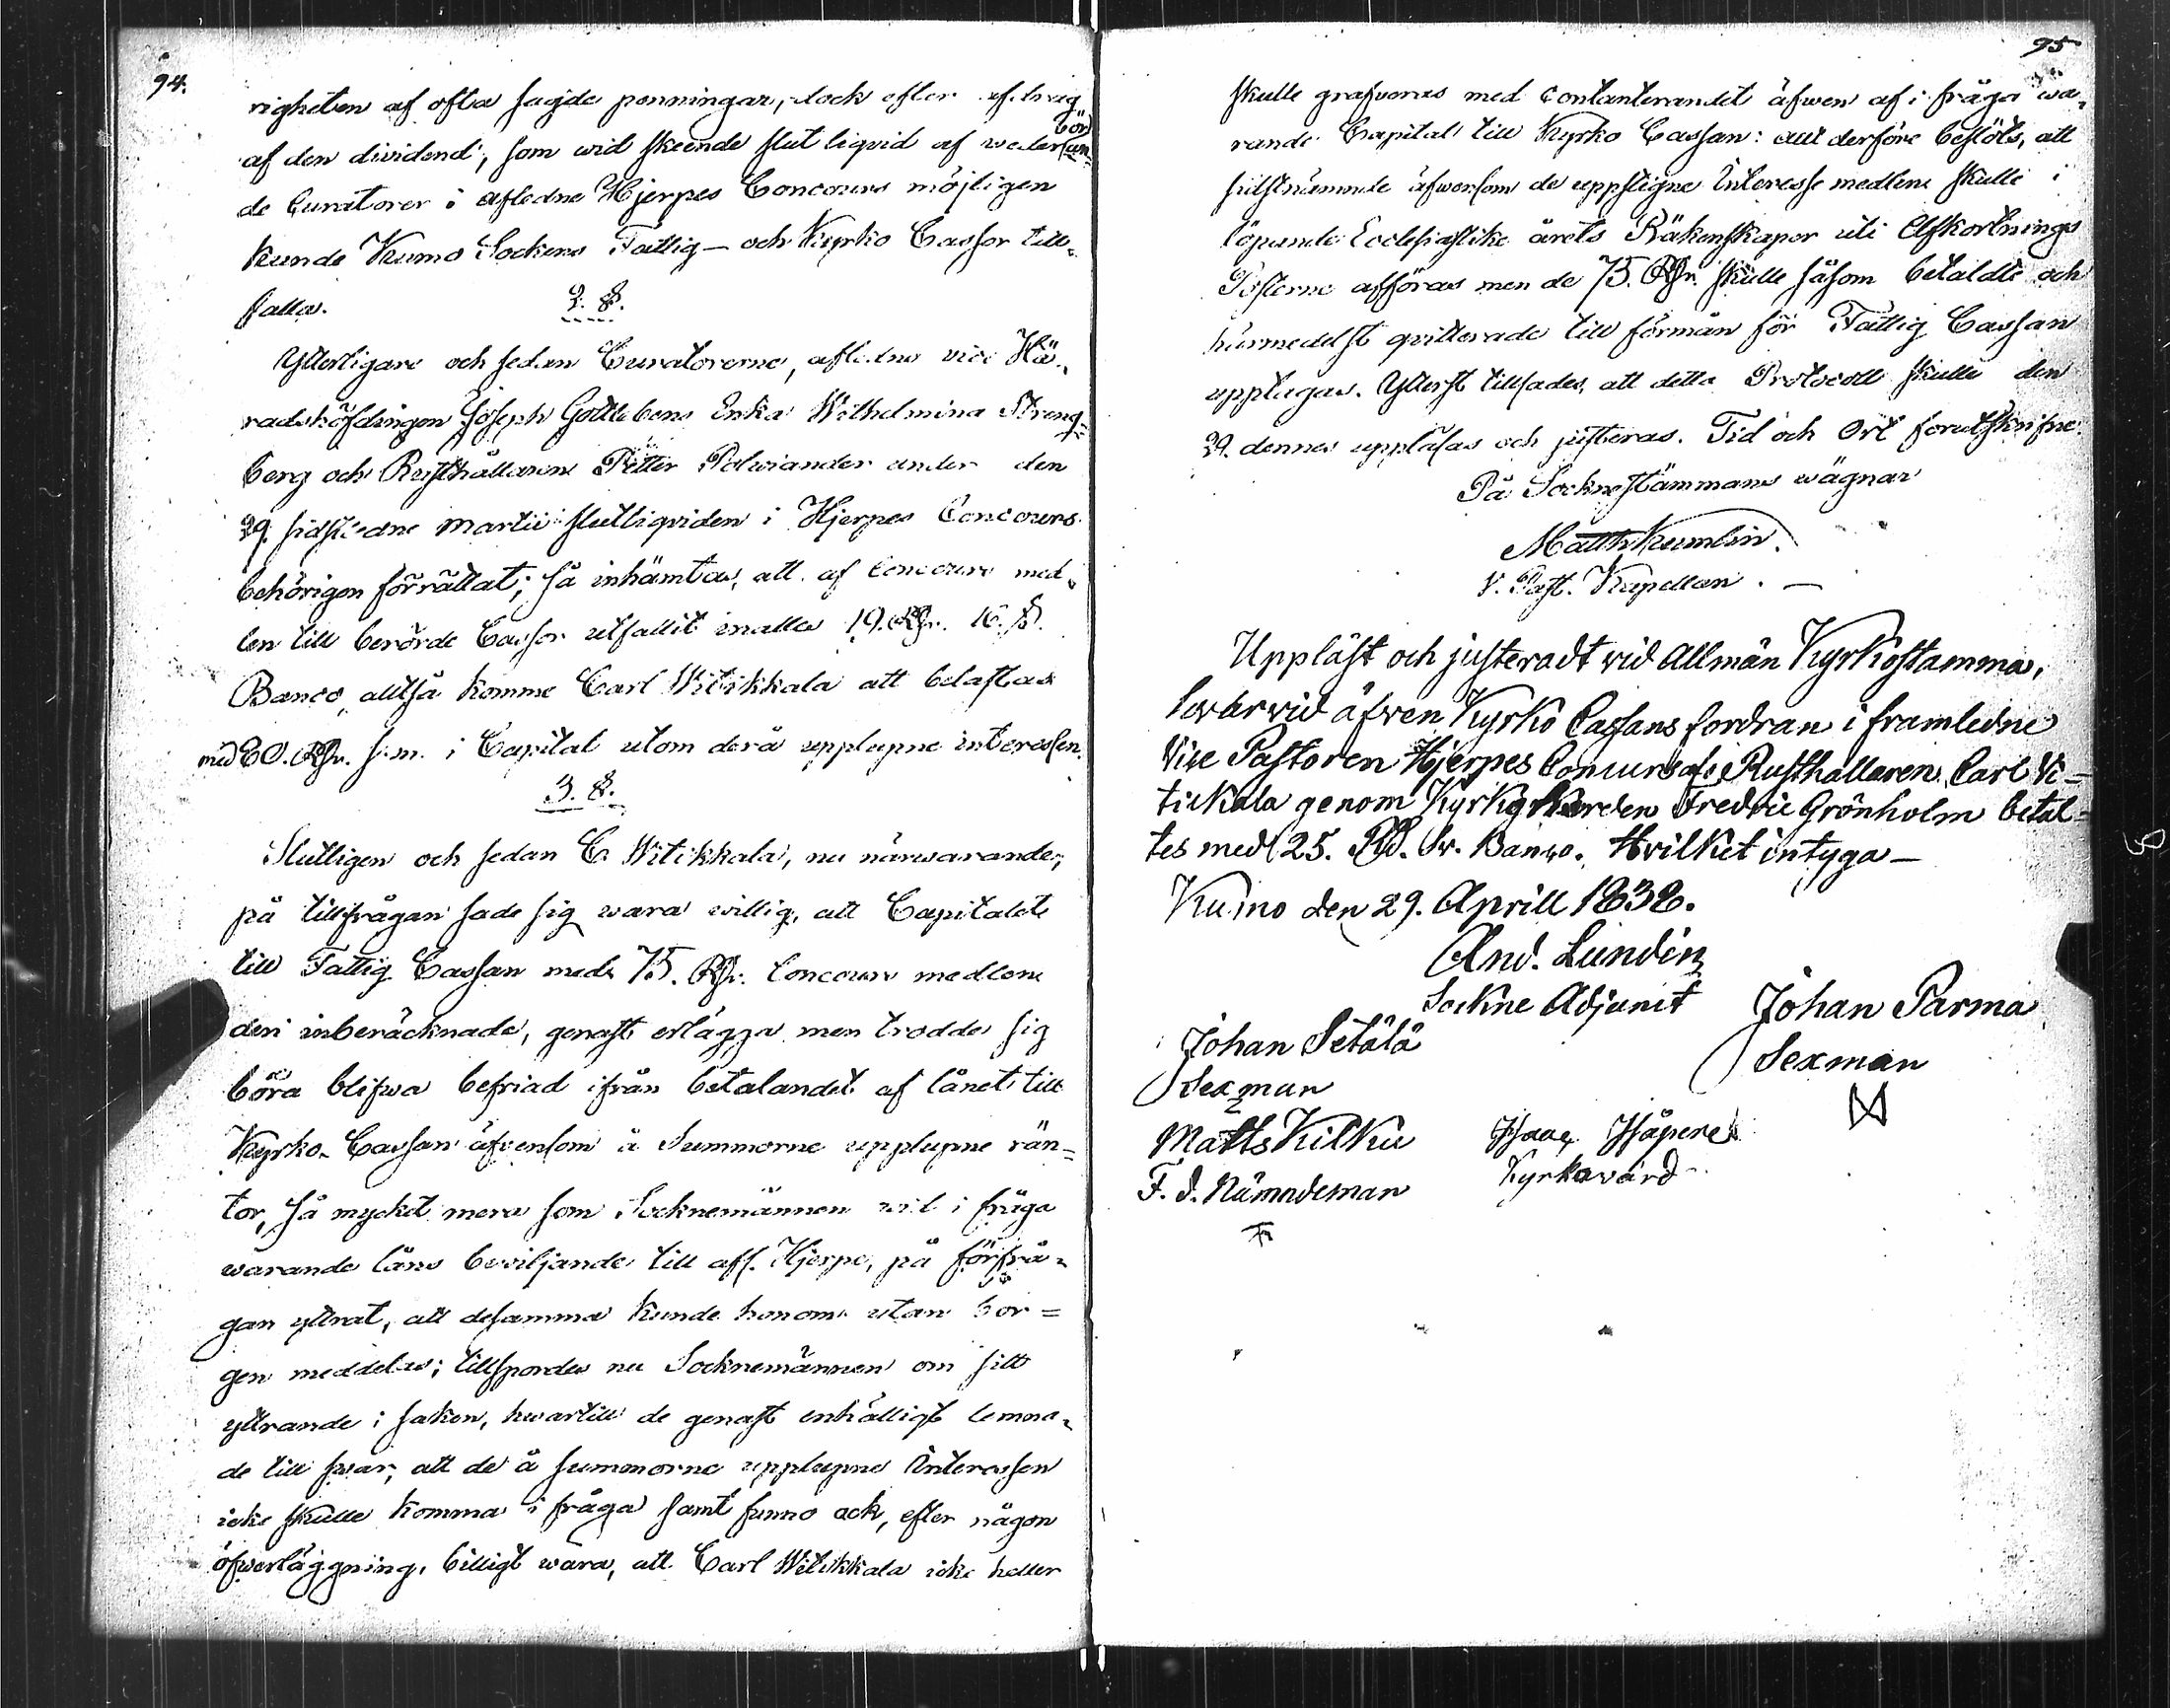 94.
righeten af ofta sagde penningar, dock efter afdrag
af den dividend, som wid skeende slut liqvid af wederbör-
de Curatorer i afledne Hjerpes Concours möjligen
kunde Kumo Sockens Fattig- och Kyrko Cassor till-
falla.
2. §.
Ytterligare och sedan Curatorerne, aflidne vice Hä-
radshöfdingen Joseph Gottlebens Enka Wilhelmina Streng-
berg och Rusthållaren Petter Palviander under den
29. sidstledne Martii slutliqviden i Hjerpes Concours
behörigen förrättat; så inhämtas, att af Concours med-
len till berörde Cassor utfallit inalles 19. Rdr. 16. s.
Banco, alltså komme Carl Witikkala att belastas
med 60. Rdr. s.m. i Capital utom derå upplupne interessen.
3. §.
Slutligen och sedan C. Witikkala, nu närwarande,
på tillfrågan sade sig wara willig, att Capitalet
till Fattig Cassan med 75. Rdr. Concours medlen
deri inberäcknade, genast erlägga men trodde sig
böra blifwa befriad ifrån betalandet af lånet till
Kyrko-Cassan äfvensom å Summorne upplupne rän-
tor, så mycket mera som Socknemännen wid i fråga
warande låns beviljande till afl. Hjerpe, på förfrå-
gan yttrat, att desamma kunde honom utan bor-
gen meddelas; tillspordes nu Socknemännen om sitt
yttrande i saken, hwartill de genast enhälligt lemna-
de till swar, att de å summorne upplupne Interessen
icke skulle komma i fråga samt funno ock, efter någon
öfwerläggning, billigt wara, att Carl Witikkala icke heller
95
skulle graveras med Contanterandet äfwen af i fråga wa-
rande Capital till Kyrko Cassan: allt derföre beslöts, att
sidstnämnde äfwensom de uppstigne Interesse medlene skulle i
löpande Ecclesiastike årets Räkenskaper uti Afkortnings
Posterne afföras men de 75. Rdr. skulle såsom betaldte och
härmedelst qvitterade till förmån för Fattig Cassan
upptagas. Ytterst tillsades, att detta Protocoll skulle den
29. dennes uppläsas och justeras. Tid och Ort förutskrifne.
På Socknestämmans wägnar
Matth Kumlin.
V. Past. Kapellan.
Uppläst och justeradt vid Allmän Kyrkostämma,
hvarvid äfven Kyrko Cassans fordran i framledne
Vice Pastoren Hjerpes Concurs af Rusthållaren Carl Vi-
tickala genom Kyrkovärden Fredric Grönholm betal-
tes med 25. Rd. Sv. Banco. Hvilket intyga—
Kumo den 29. Aprill 1838.
And. Lundén
Sockne Adjunct
Johan Parma
Sexman
Johan Setälä
Sexman
Matts Kilku
F. d. Nämndeman
Isaac
Kyrkovärd